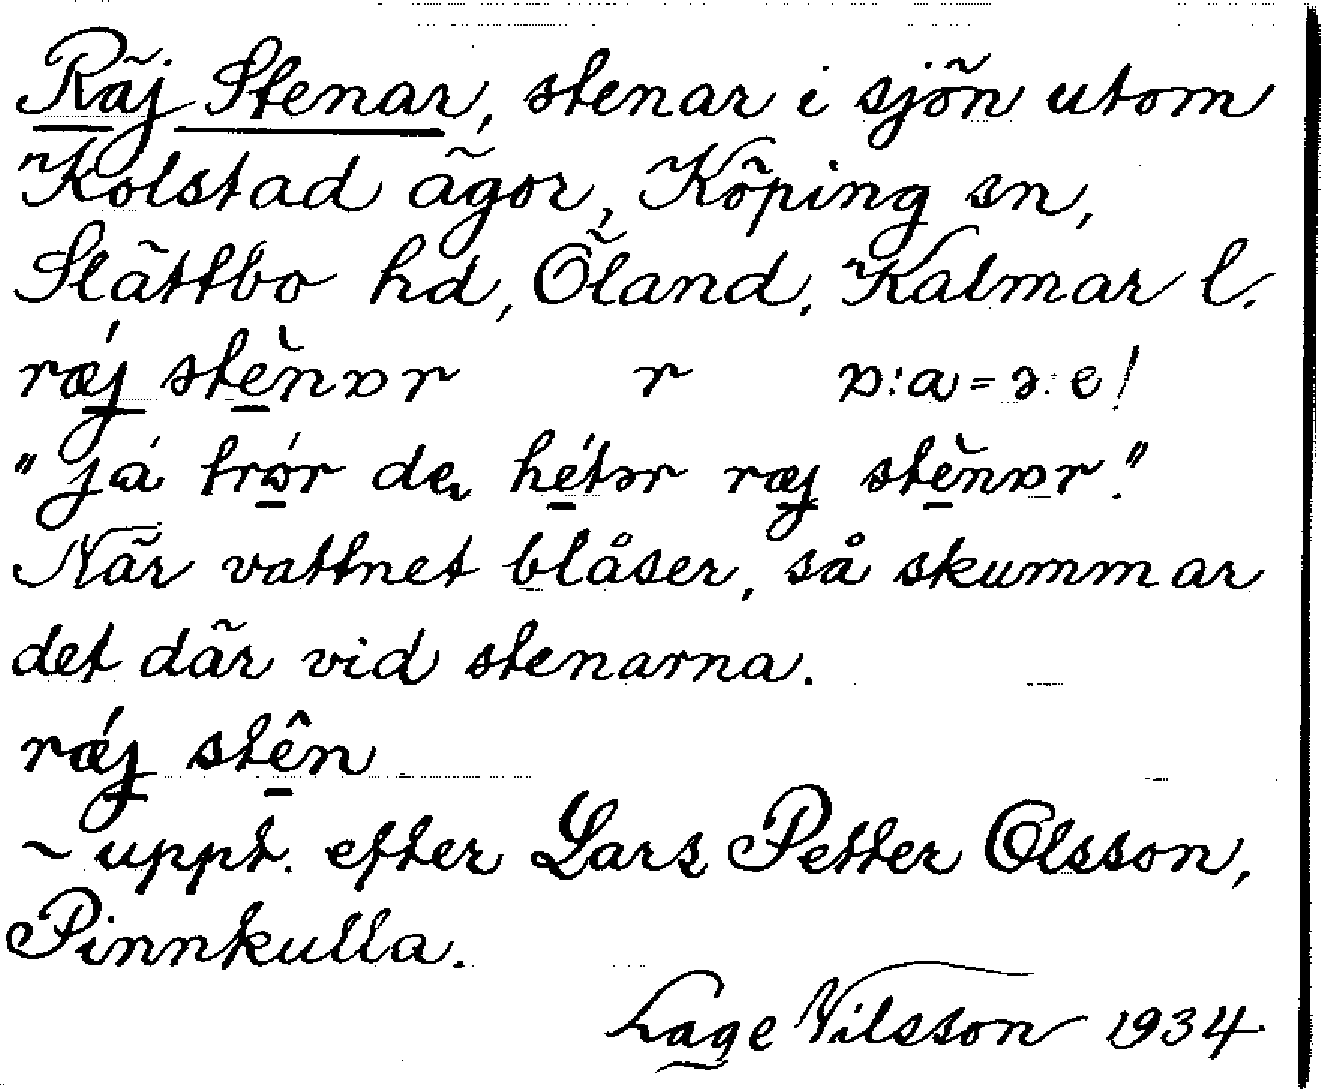 Räj Stenar, stenar i sjön utom
Kolstad ägor, Köping sn,
Slättbo hd, Öland. Kalmar l.
ræ̀j stènɒr r ɒ:a=ɔ:e!
"já trór de hétər ræj stènɒr."
När vattnet blåser, så skummar
det där vid stenarna.
rǽj stên
~ uppt. efter Lars Petter Olsson,
Pinnkulla.
Lage Nilsson 1934